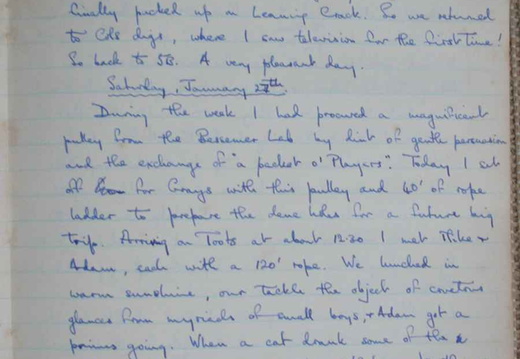 finally picked up on Leaning Crack. So we returned
to Cds digs, where I saw television for the first time!
So back to SB. A very pleasant day.
Saturday, January 27th.
During the week I had procured a magnificent
pulley from the Bessemer Lab by dint of gentle persuasion
and the exchange of "a packet o' Players". Today I set
off for Grays with this pulley and 60' of rope
ladder to prepare the dene holes for a future big
trip. Arriving on Toots at about 12.30 I met Mike &
Adam, each with a 120' rope. We lunched in
warm sunshine, our tackle the object of covetous
glances from myrieds of small boys, & Adam got a
primus going. When a cat drank some of the